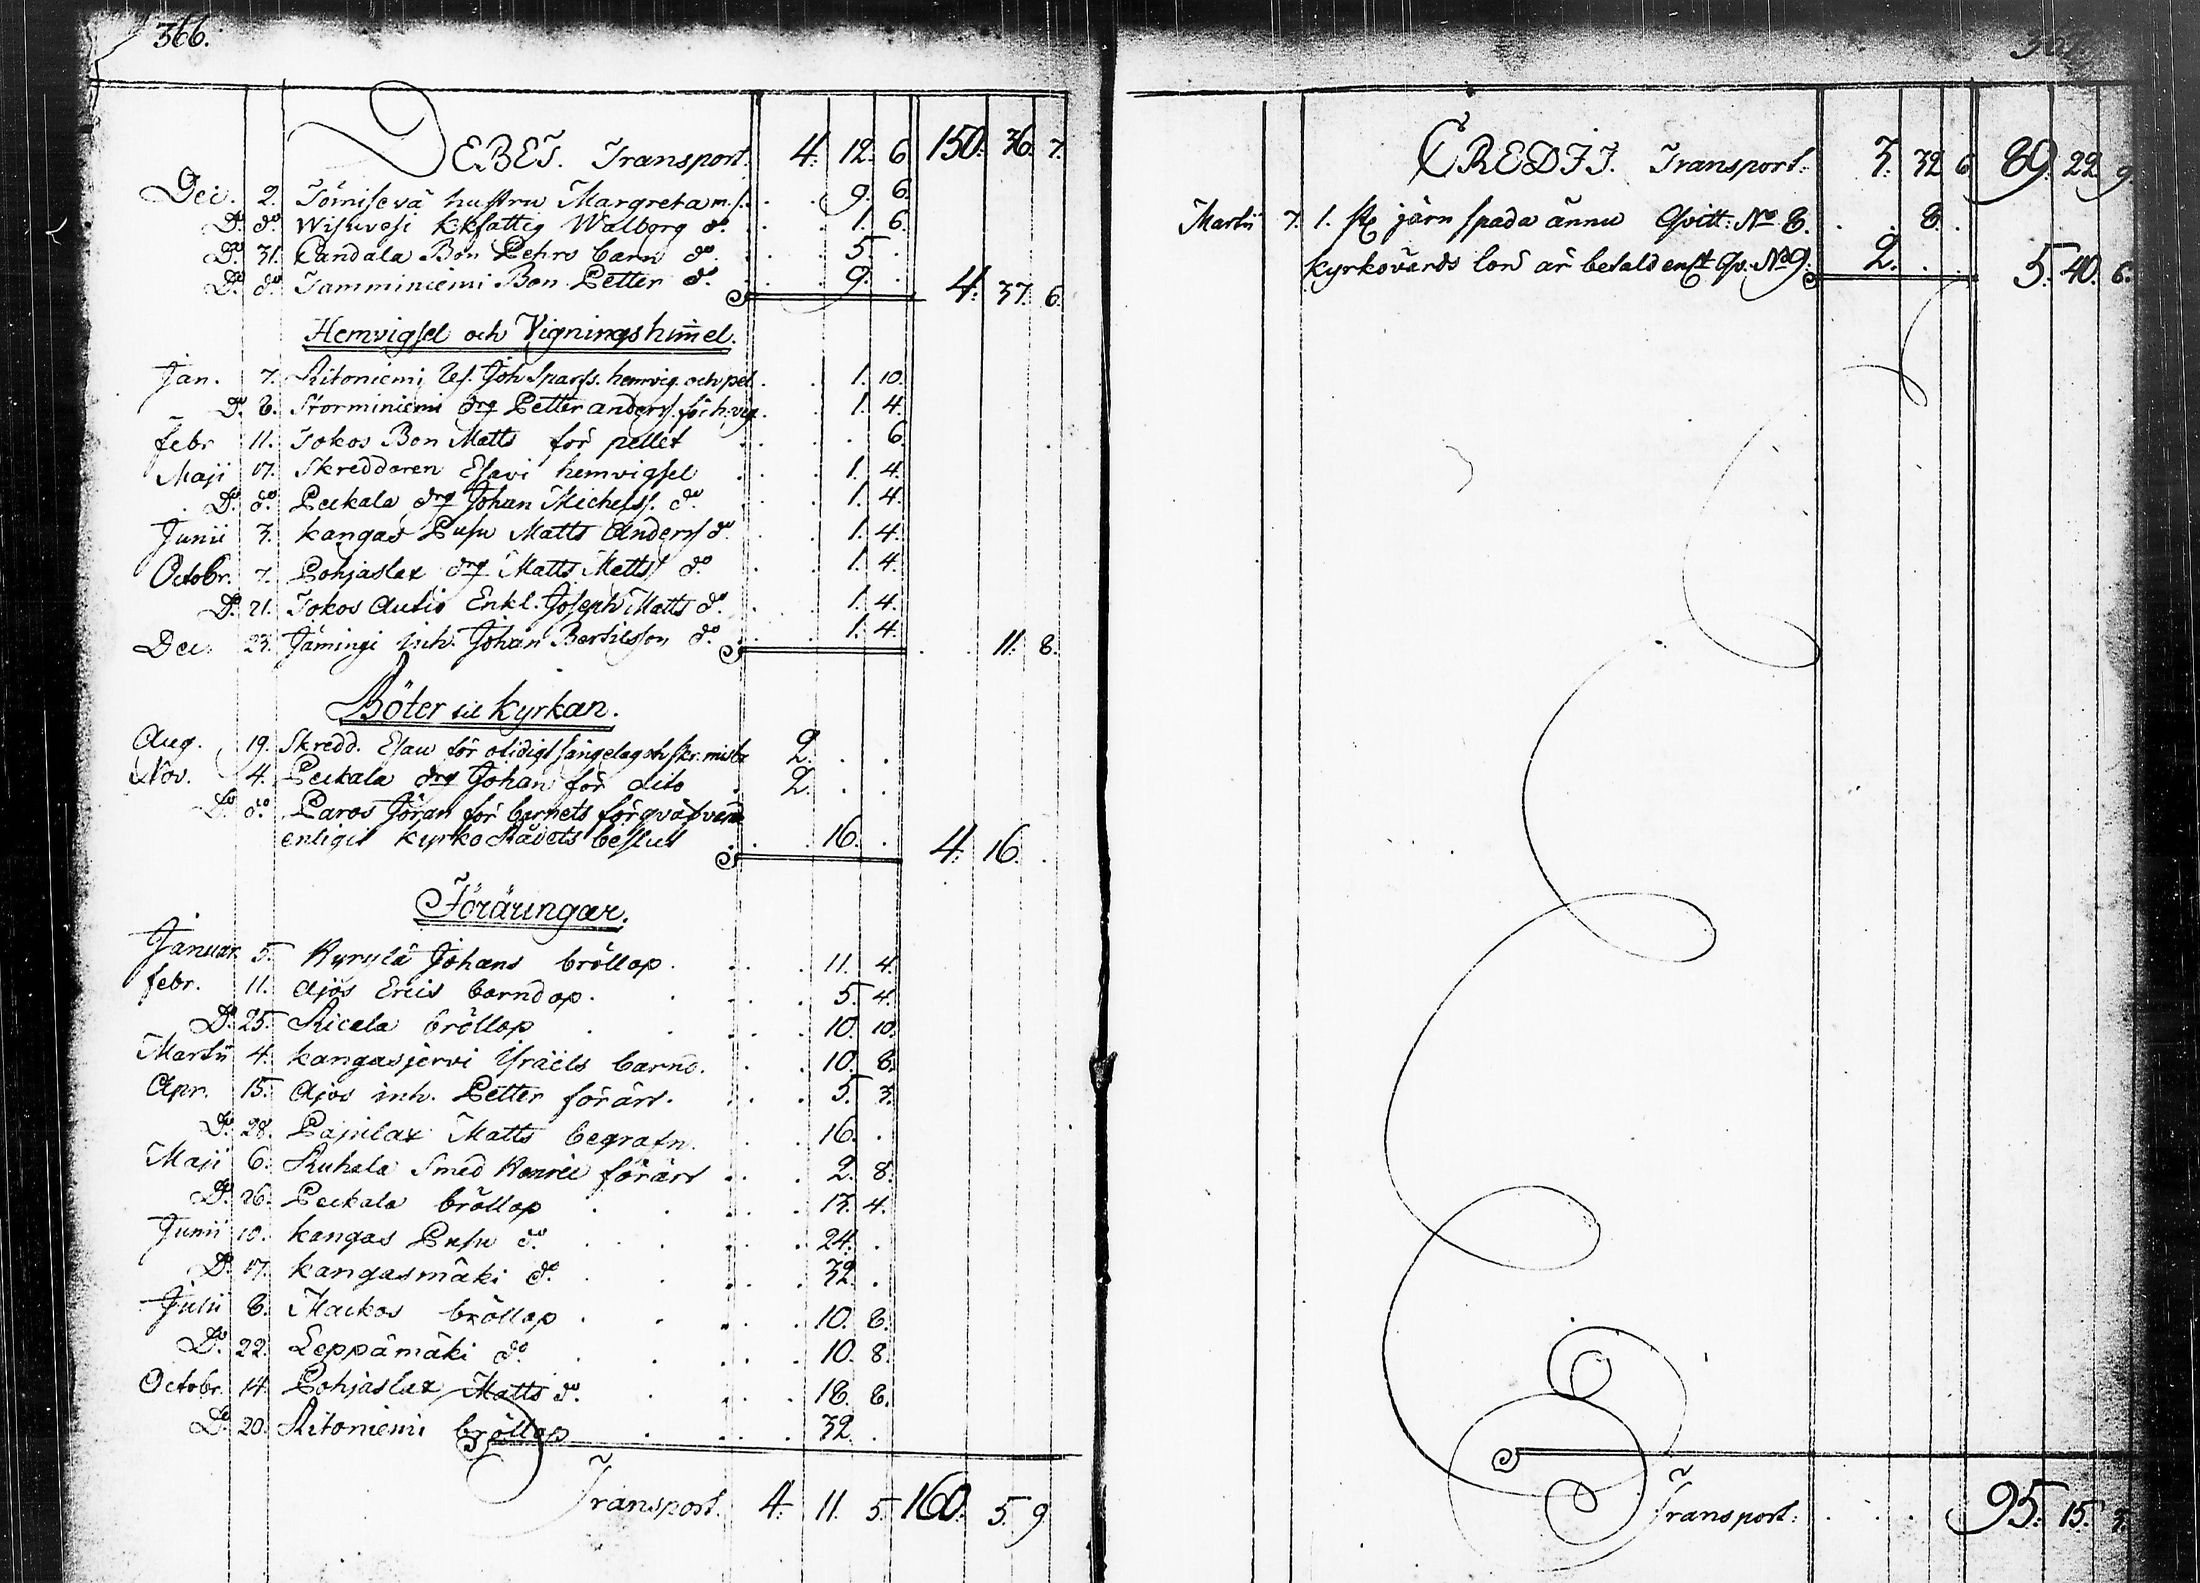 366.
DEBET. Transport. 4. 12. 6. 150. 36. 7.
Dec. 2. Tömisevä hustru Margreta m.s. . . 9. 6.
Do. do. Wisuvesi kksattig Walborg do. . . 1. 6.
Do. 31. Candala Bon Pehrs barn do. . . 5. .
Do. do. Tamminiemi Bon Petter do. . . 9. . 4. 37. 6.
Hemvigsel och Vigningshimmel.
Jan. 7. Ritoniemi Joh Sparfs. hemvig. och pel. . . 1. 10.
Do. 8. Storminiemi drg Petter anderss. för h:vig. . 1. 4.
febr 11. Jokos Bon Matts för pellet . . . 6.
Maji 17. Skreddaren Esavi hemvigsel . . 1. 4.
Do. do. Peckala drg Johan Michelss. do. . . 1. 4.
Junii 3. kangas Pusu Matts Anderss do. . . 1. 4.
Octobr. 7. Pohjaslax drg Matts Mattss do. . . 1. 4.
Do. 21. Jokos Autio Enkl. Joseph Matts do. . . 1. 4.
Dec. 23. Jämingi inh. Johan Bertilsson do. . . 1. 4. . 11. 8.
Böter til kyrkan.
Aug. 19. Skredd. Esau för otidigt sängelag och skr. 2. . .
Nov. 4. Peckala drg Johan för dito . 2. . .
Do. do. Paros Jöran för barnets förqväfvand
enligit kyrko Rådets beslut . . 16. . 4. 16. .
Föräringar.
Januar. 5. Kyrylä Johans bröllop. . . . 11. 4.
febr. 11. Ajos Erics barndop. . . . 5. 4.
Do. 25. Ricala bröllop . . . 10. 10.
Martii 4. kangasjervi Israëls barnd. . . 10. 8.
Apr. 15. Ajos inh. Petter förärt. . . . 5. 3.
Do. 28. Pajulax Matts begrafn. . . 16. .
Maji 6. Ruhala Smed Henric förärt . . . 2. 8.
Do. 26. Peckala bröllop . . . 13. 4.
Junii 10. kangas Pusu do. . . . 24. .
Do. 17. kangasmäki do. . . . 32. .
Julii 8. Maikos bröllop . . . 10. 8.
Do. 22. Leppämäki do. . . . 10. 8.
Octobr. 14. Pohjaslax Matts do. . . . 18. 8.
Do. 20. Ritoniemi bröllop . . . 32. .
Transport. 4. 11. 5. 160. 5. 9
CREDIT. Transport. 3. 32. 6. 89. 22. 9.
Martii 7. 1. st järn spada ännu Qvitt: No 8. . . 8. .
kyrkovärds lön är betald enl Qv. No 9. 2. . . 5. 40. 6.
Transport. . . . 95. 15. 3.